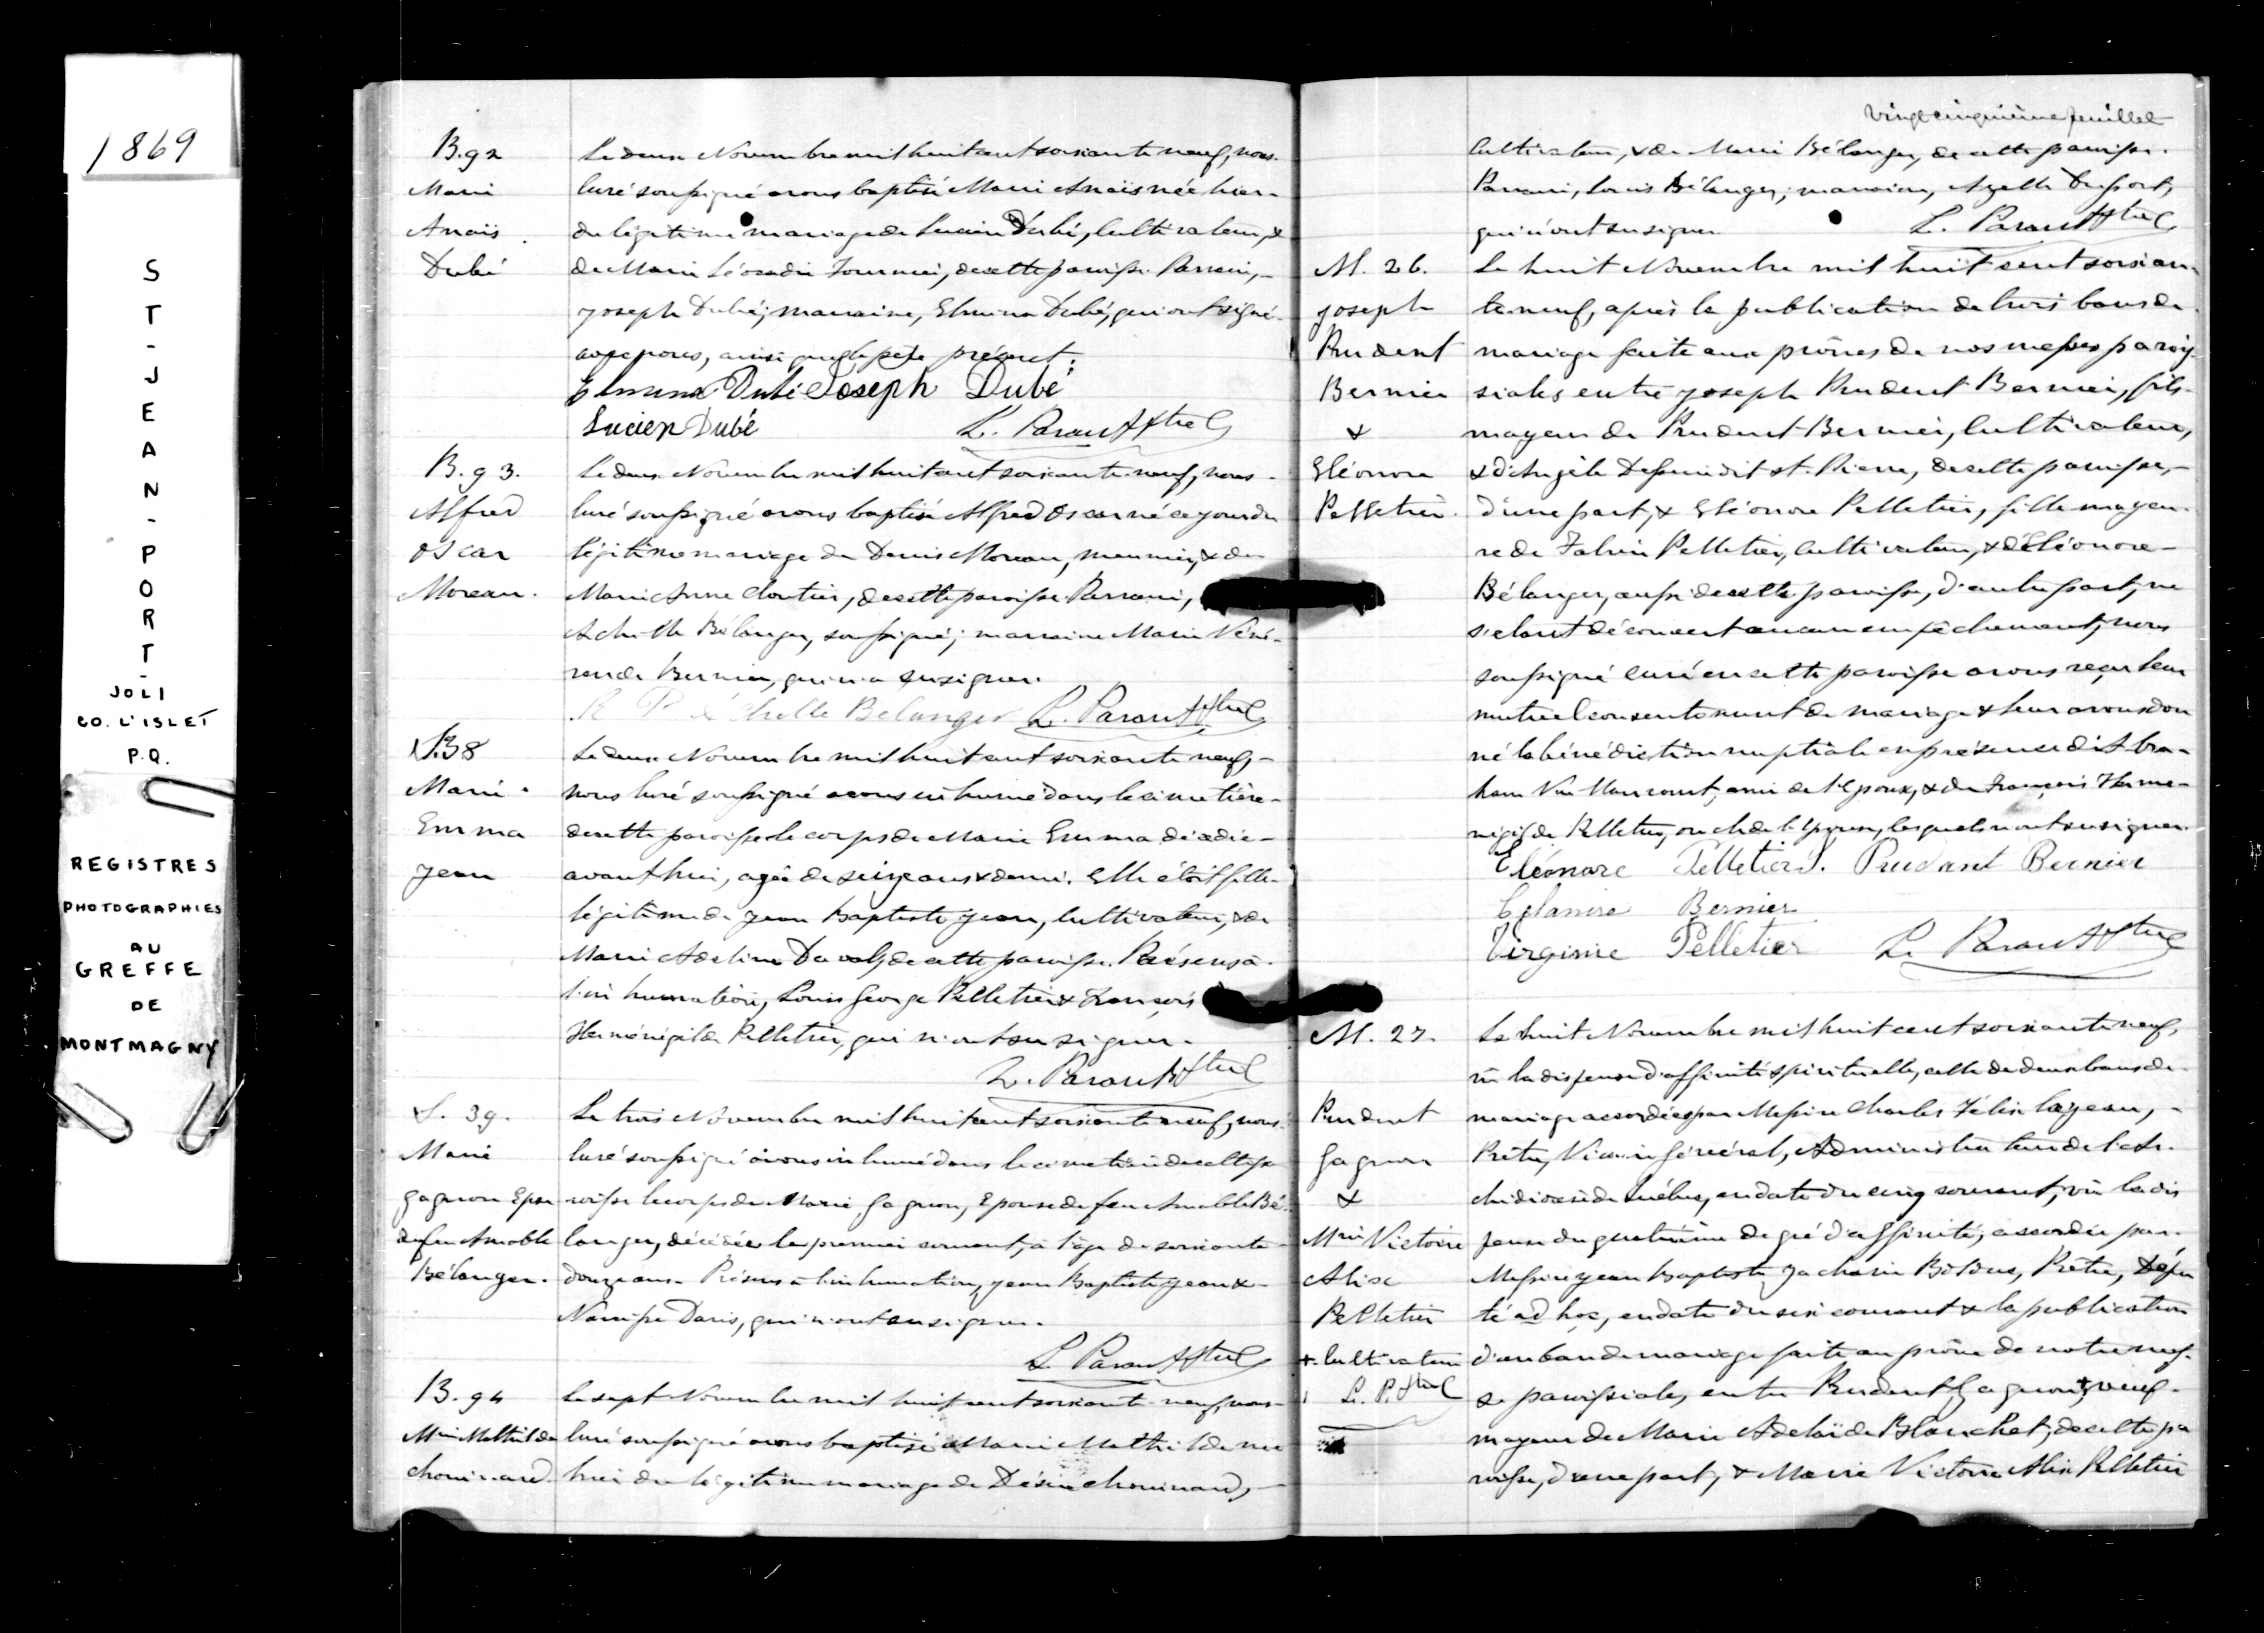 1869
S
T
-
J
E
A
N
-
P
O
R
T
-
JOLI
CO. L'ISLET
P.Q.
REGISTRES
PHOTOGRAPHIES
AU
GREFFE
DE
MONTMAGNY
B. 92
Marie
Anaïs
Dubé
Le deux Novembre mil huit cent soixante neuf, nous
Curé soussigné avons baptisé Marie Anaïs née hier
du légitime mariage de Lucien Dubé, Cultivateur, &
de Marie Léocadie Fournier, de cette paroisse. Parrain,
Joseph Dubé; marraine, Elmina Dubé, qui ont signé
avec nous, ainsi que le père présent.
Elmina Dubé Joseph Dubé
Lucien Dubé L. Parant Ptre
B. 93.
Alfred
Oscar
Moreau.
Le deux Novembre mil huit cent soixante neuf, nous
Curé soussigné avons baptisé Alfred Oscar né ce jour du
légitime mariage de Denis Moreau, meunier, & de
Marie Anne Cloutier, de cette paroisse. Parrain,
Achille Bélanger, soussigné; marraine Marie Véné-
rande Bernier, qui n'a su signer.
Achille Belanger L. Parant Ptre
S. 38
Marie
Emma
Jean
Le deux Novembre mil huit cent soixante neuf,
nous Curé soussigné avons inhumé dans le cimetière
de cette paroisse le corps de Marie Emma décédée
avant hier, agée de seize ans & demi. Elle était fille
légitime de Jean Baptiste Jean, Cultivateur, & de
Marie Adeline Duval, de cette paroisse. Présens à
l'inhumation, Louis George Pelletier & François
Herménégilde Pelletier, qui n'ont su signer.
L. Parant Ptre
S. 39.
Marie
Gagnon Epse
de feu Amable
Bélanger.
Le trois Novembre mil huit cent soixante neuf, nous
Curé soussigné avons inhumé dans le cimetière de cette pa
roisse le corps de Marie Gagnon, Epouse de feu Amable Bé-
langer, décédée le premier courant, à l'âge de soixante
douze ans. Présens à l'inhumation, Jean Baptiste Jean &
Narcisse Davis, qui n'ont su signer.
L. Parant Ptre
B. 94
Mie Mathilde
Chouinard.
Le sept Novembre mil huit cent soixante neuf, nous
Curé soussigné avons baptisé Marie Mathilde née
hier du légitime mariage de Désiré Chouinard,
Vingt cinquième feuillet
Cultivateur, & de Marie Bélanger, de cette paroisse.
Parrain, Louis Bélanger; marraine, Azelle Dufort,
qui n'ont su signer. L. Parant Ptre
M. 26.
Joseph
Prudent
Bernier
&
Eléonore
Pelletier.
Le huit Novembre mil huit cent soixan-
te neuf, après la publication de trois bans de
mariage faite aux prônes de nos messes parois
siales entre Joseph Prudent Bernier, fils
majeur de Prudent Bernier, Cultivateur,
& d'Angèle Dessein dit St. Pierre, de cette paroisse,
d'une part, & Eléonore Pelletier, fille majeu-
re de Pelletier, Cultivateur, & d'Eléonore
Bélanger, aussi de cette paroisse, d'autre part, ne
s'étant découvert aucun empêchement, nous
soussigné curé en cette paroisse avons reçu leur
mutuel consentement de mariage & leur avons don
né la bénédiction nuptiale en présence d'Abra-
ham ami de l'Epoux, & de François Herme-
négilde Pelletier, oncle de l'Epouse, lesquels n'ont su signer.
Eléonore Pelletier J. Prudent Bernier
Bernier
Virginie Pelletier L. Parant Ptre
M. 27.
Prudent
Gagnon
&
Mie Victoire
Alix
Pelletier
+ Cultivateur
L. P. Ptre
Le huit Novembre mil huit cent soixante neuf,
vû la dispense d'affinité spirituelle, celle de deux bans de
mariage accordées par Messire Charles Félix Cazeau,
Prêtre, Vicaire Général, Administrateur de l'Ar-
chidiocèse de Québec, en date du cinq courant, vû la dis
pense du quatrième degré d'affinité, accordée par
Messire Jean Baptiste Zacharie Bolduc, Prêtre, Dépu
té ad hoc, en date du six courant & la publication
d'un ban de mariage faite au prône de notre mes-
se paroissiale, entre Prudent Gagnon, + veuf
majeur de Marie Adelaïde Blanchet, de cette pa
roisse, d'une part, & Marie Victoire Alix Pelletier